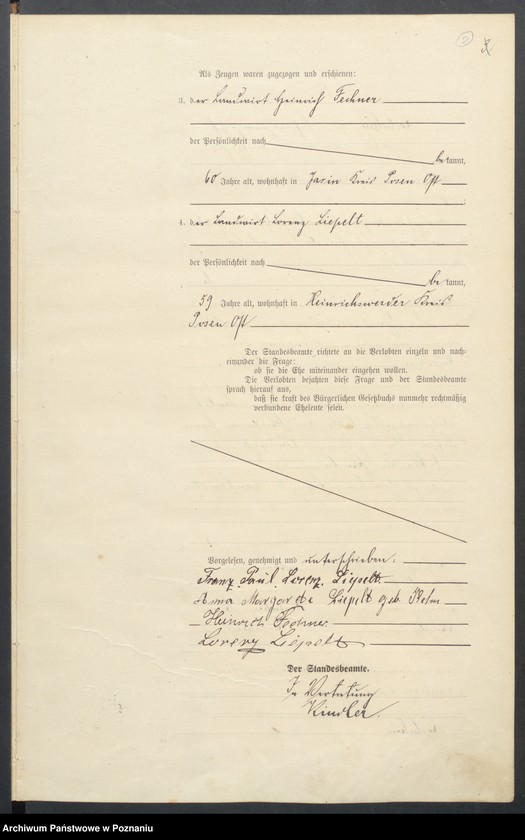 2
Als Zeugen waren zugezogen und erschienen:
3. der Landwirt Heinrich Fechner
der Persönlichkeit nach
be kannt,
60 Jahre alt, wohnhaft in Jasin Kreis Posen Ost
4. der Landwirt Lorenz Liepelt
der Persönlichkeit nach
be kannt,
59 Jahre alt, wohnhaft in Heinrichswerder Kreis
Posen Ost
Der Standesbeamte richtete an die Verlobten einzeln und nach-
einander die Frage:
ob sie die Ehe miteinander eingehen wollen.
Die Verlobten bejahten diese Frage und der Standesbeamte
sprach hierauf aus,
daß sie kraft des Bürgerlichen Gesetzbuchs nunmehr rechtmäßig
verbundene Eheleute seien.
Vorgelesen, genehmigt und unterschrieben:
Franz Paul Lorenz Liepelt
Anna Margarete Liepelt geb.
Heinrich Fechner
Lorenz Liepelt
Der Standesbeamte.
In Vertretung
Kindler
Archiwum Państwowe w Poznaniu